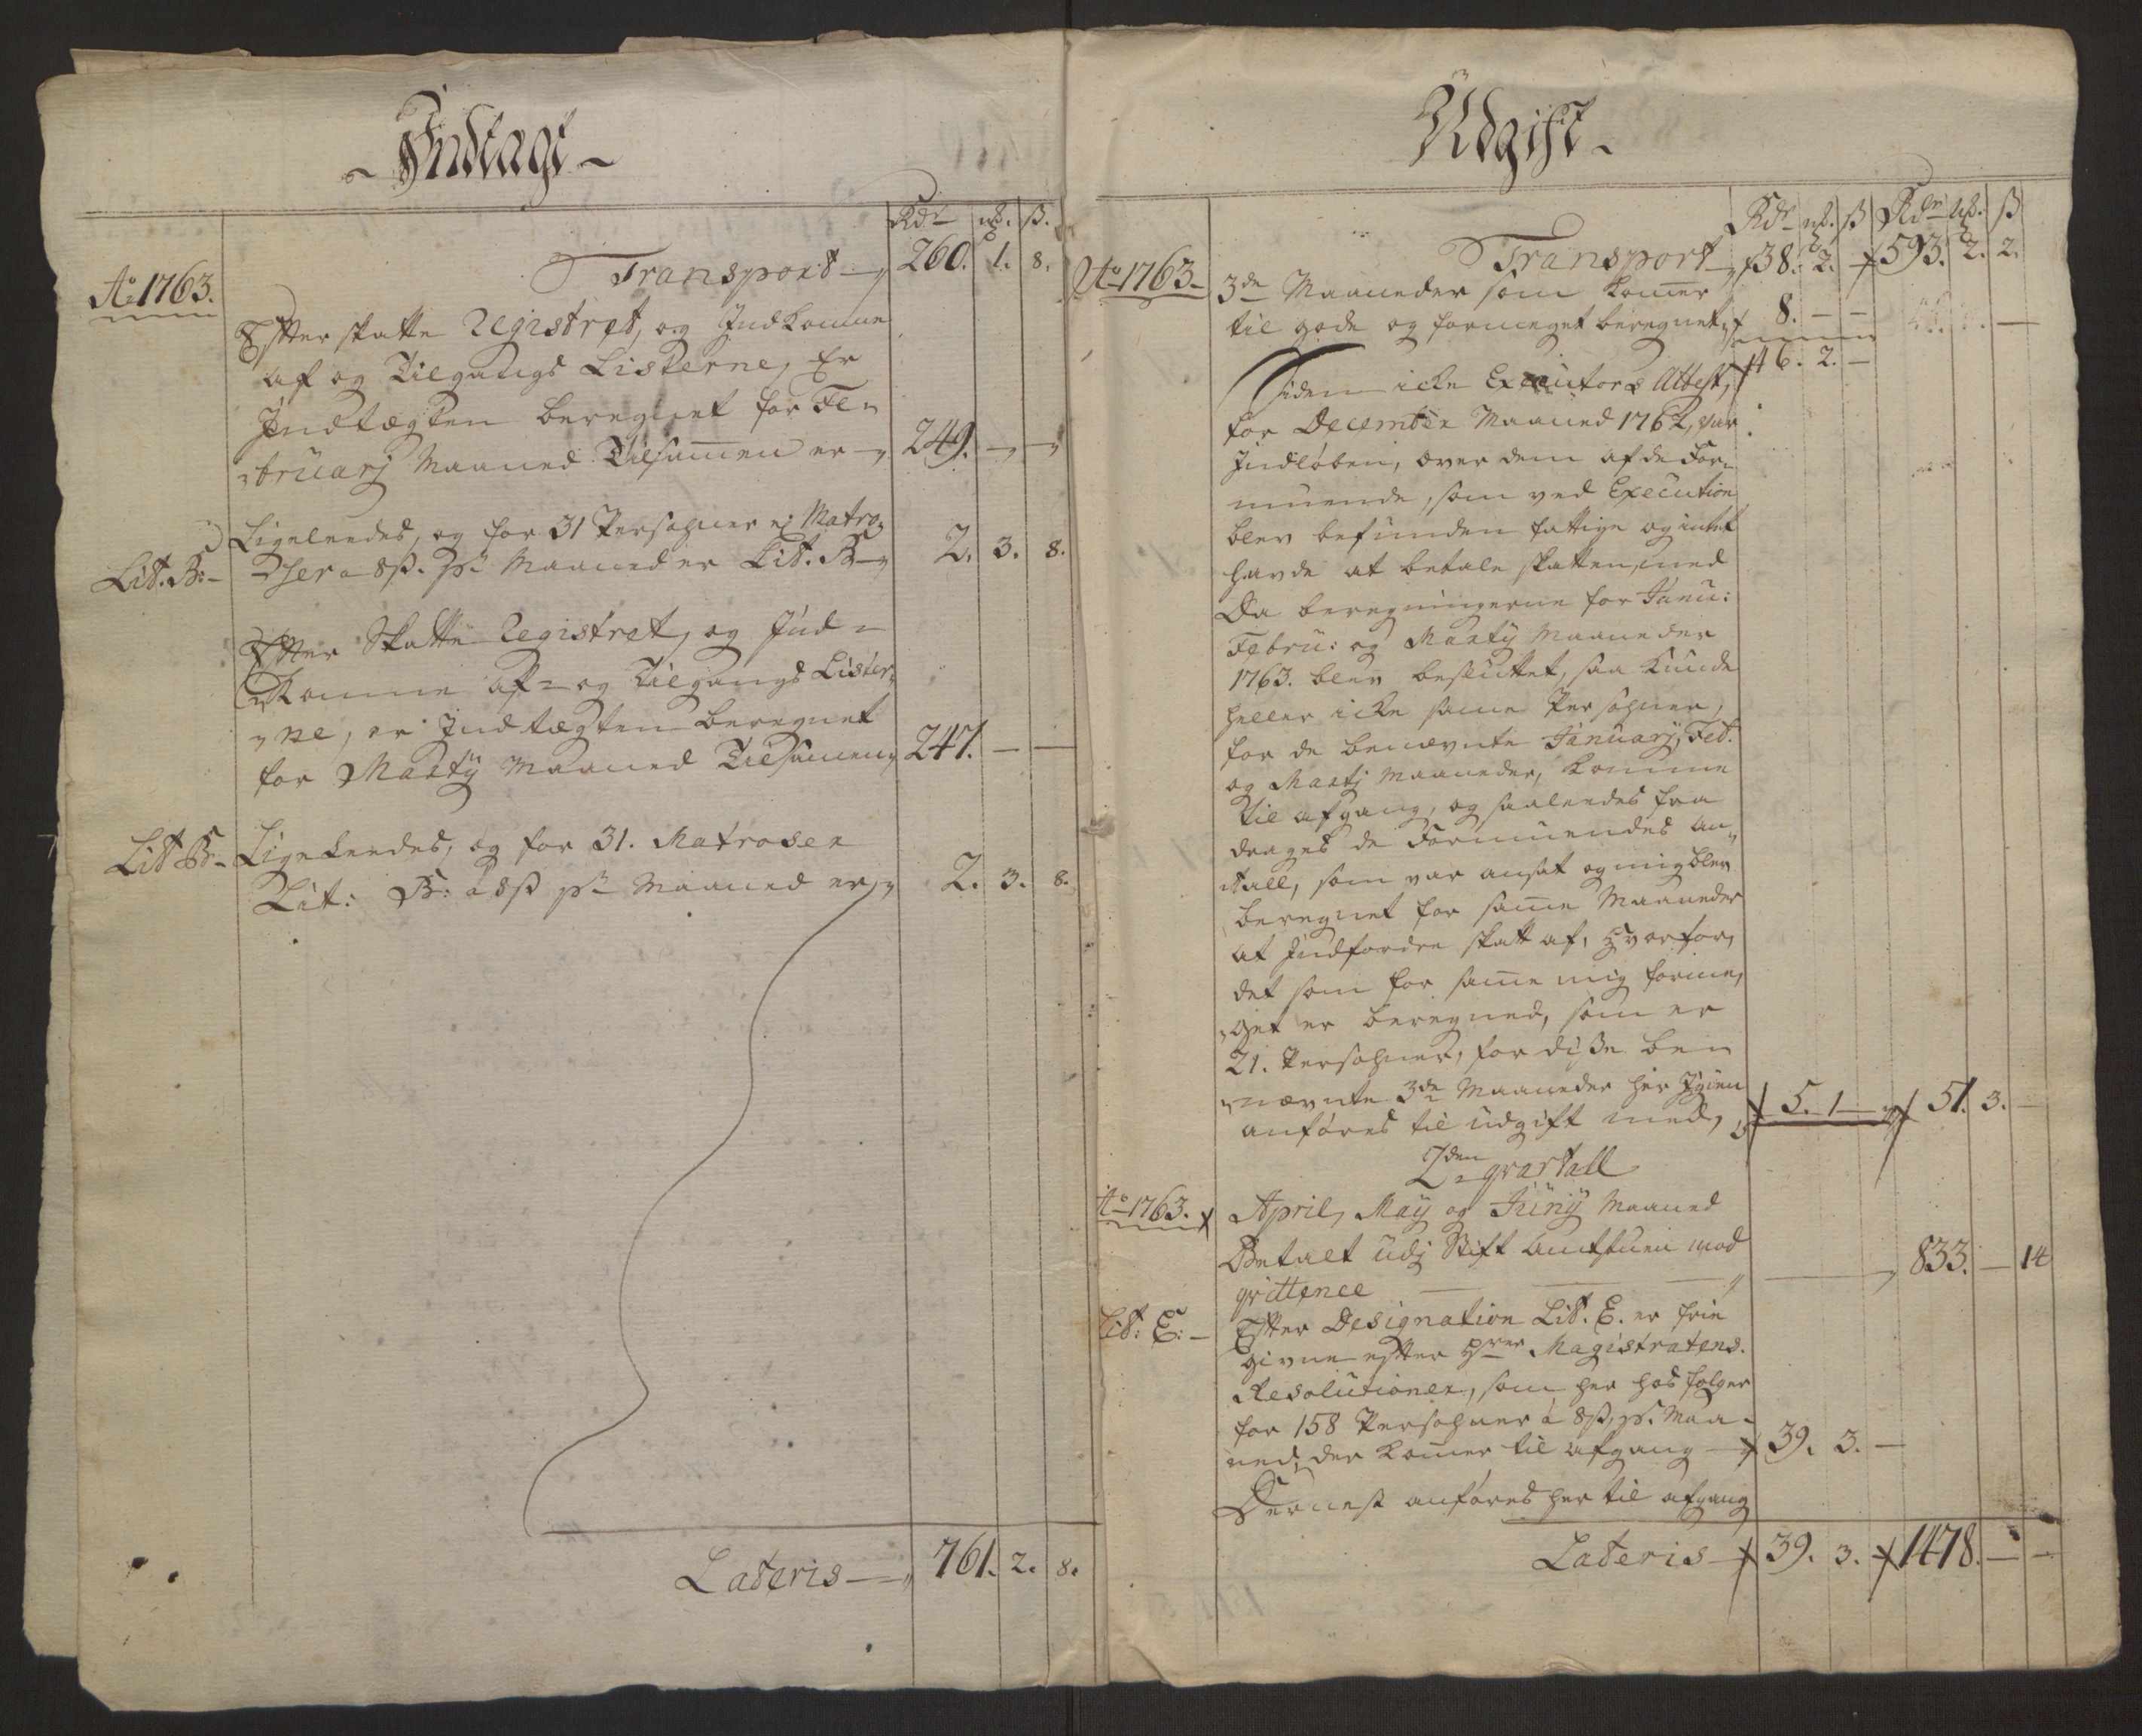 - Indtægt -
Rdr mk. ß.
Transport 260. 1. 8.
Ao 1763.
Efter skatte Registret, og Indkomne
af og Tilgangs Listerne, Er
Indtægten beregnet for Fe-
bruarj Maaned Tilsamen er 249. - -
Ligeleedes, og for 31 Persohner ej Matro-
Lit. B: - ser a 8ß. pr Maaned er Lit. B 2. 3. 8.
Efter Skatte Registret, og Ind-
komne af- og Tilgangs Lister-
ne, er Indtægten beregnet
for Martij Maaned Tilsamen 247. - -
Lit B- Ligeleedes, og for 31. Matroser
Lit: B: a 8ß pr Maaned er 2. 3. 8.
Lateris 761. 2. 8.
Udgift -
Rdr mk. ß Rdr mk. ß
Transport 38. 2. - 593. 2. 2.
Ao 1763 3de Maaneder som komer
til gode og formeget beregnet 8. - -
46. 2. -
Siden icke Executors Attest,
for December Maaned 1762, var
Indløben, over dem af de For-
muende, som ved Execution
blev befunden fattige og intet
havde at betale skatten med
Da beregningerne for Janu:
Febru: og Martij Maaneder
1763. blev besluttet, saa kunde
heller icke same Persohner,
for de benævnte Januarij, Feb.
og Martj Maaneder, komme
til afgang, og saaleedes fra
drages de Formuendes An-
tall, som var ansat og mig blev
beregnet for same Maaneder
at Indfordre skatt af, hvorfor,
det som for same mig forme-
get er beregned, som er
21. Persohner, for disse be-
nævnte 3de Maaneder her Igien
anføres til udgift med, 5. 1 - 51. 3. -
2den qvartall
Ao 1763. April, May og Junij Maaned
Betalt udj Stift Amtstuen mod
qvittence 833. - 14
Lit: E: - Efter Designation Lit. E. er frie
givne efter Magistratens
Resolutioner, som her hos følger
for 158 Persohner á 8ß. pr. Maa-
ned, der komer til afgang 39. 3. -
Dernest anføres her til afgang
Lateris 39. 3. 1478. - -